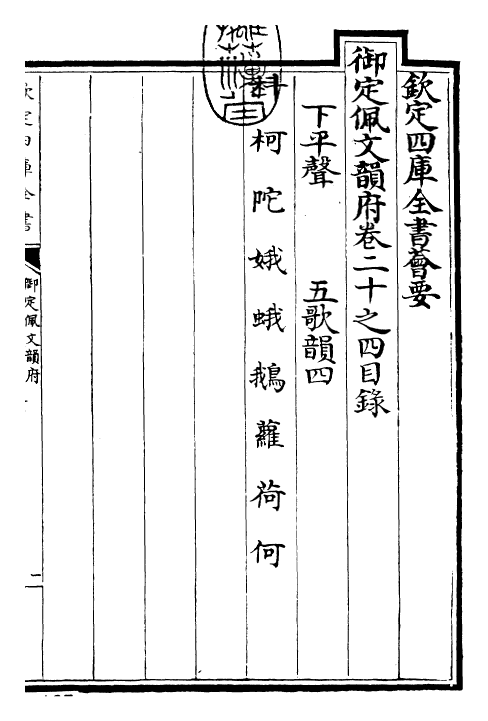 欽定四庫全書薈要
御定佩文韻府卷二十之四目錄
下平聲 五歌韻四
科 柯 陀 娥 蛾 鵝 蘿 荷 何
欽定四庫全書
御定佩文韻府
二